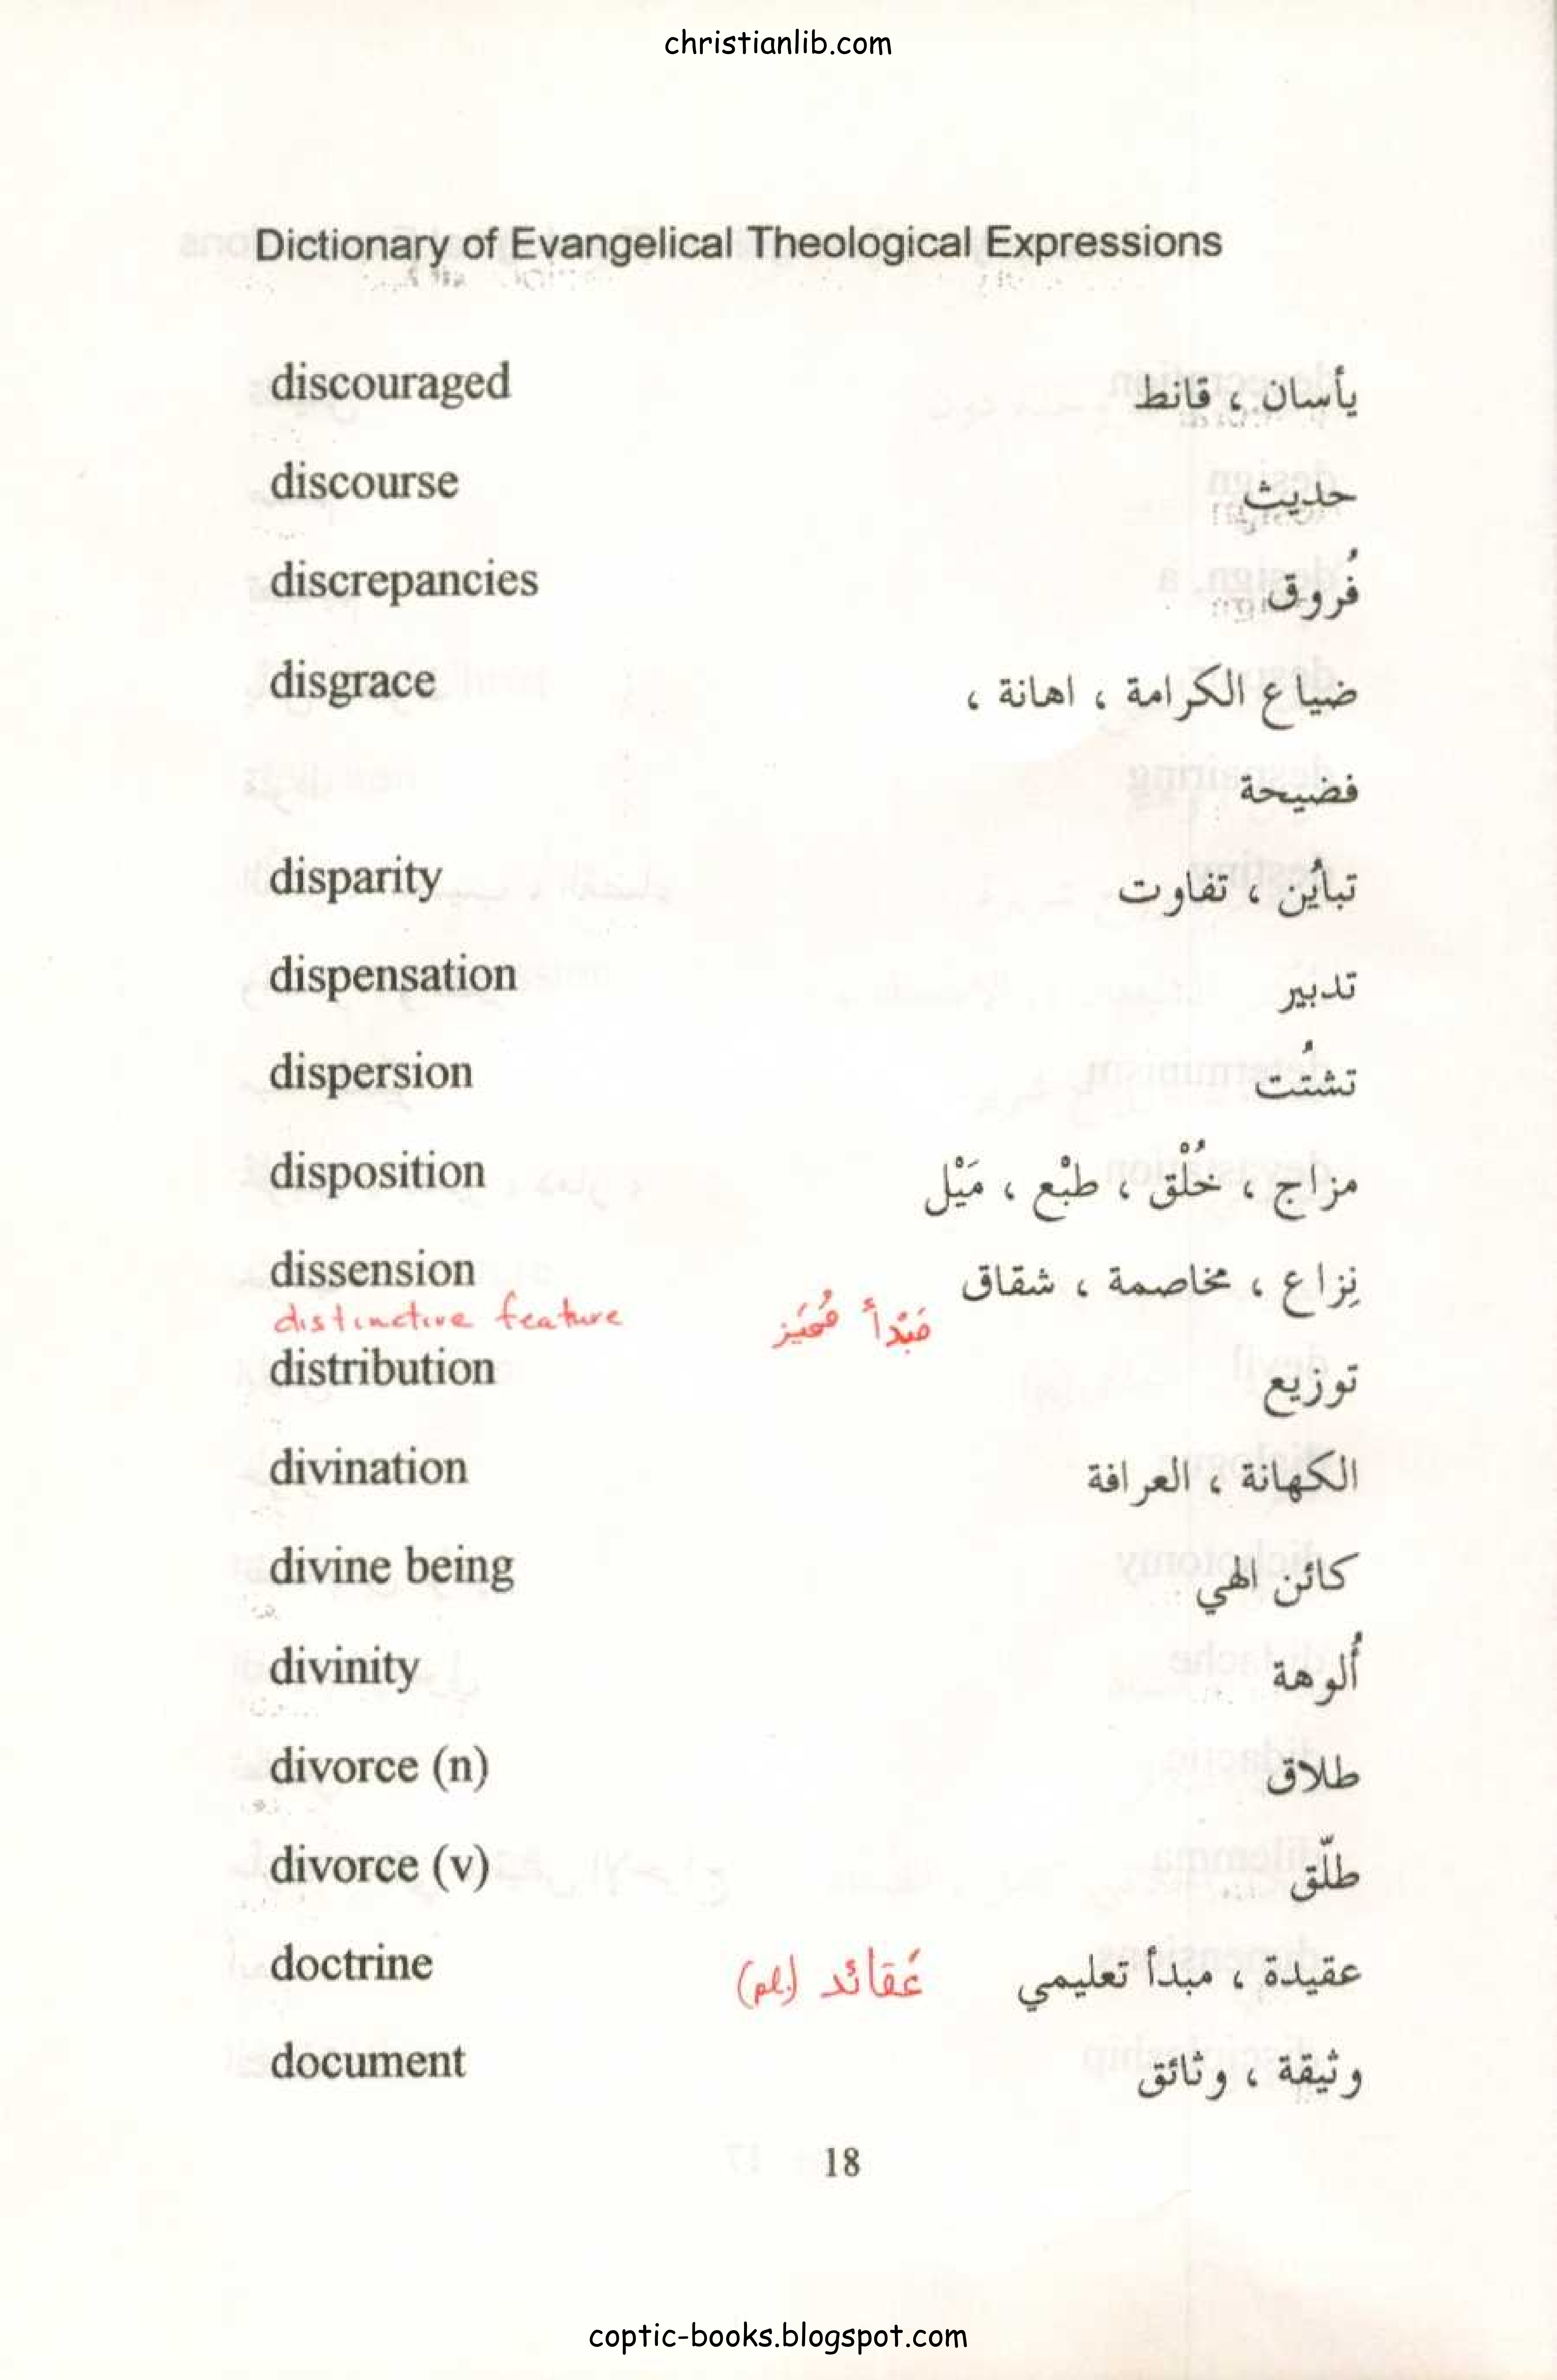 christianlib.com
Dictionary of Evangelical Theological Expressions
discouraged يأسان ، قانط
discourse حديث
discrepancies فُروق
disgrace ضياع الكرامة ، اهانة ،
فضيحة
disparity تبايُن ، تفاوت
dispensation تدبير
dispersion تشتُت
disposition مزاج ، خُلْق ، طبْع ، مَيْل
dissension نِزاع ، مخاصمة ، شقاق
distinctive feature مَبْدأ مُميَز
distribution توزيع
divination الكهانة ، العرافة
divine being كائن الهي
divinity أُلوهة
divorce (n) طلاق
divorce (v) طلّق
doctrine عقيدة ، مبدأ تعليمي عَقائد (pl.)
document وثيقة ، وثائق
18
coptic-books.blogspot.com